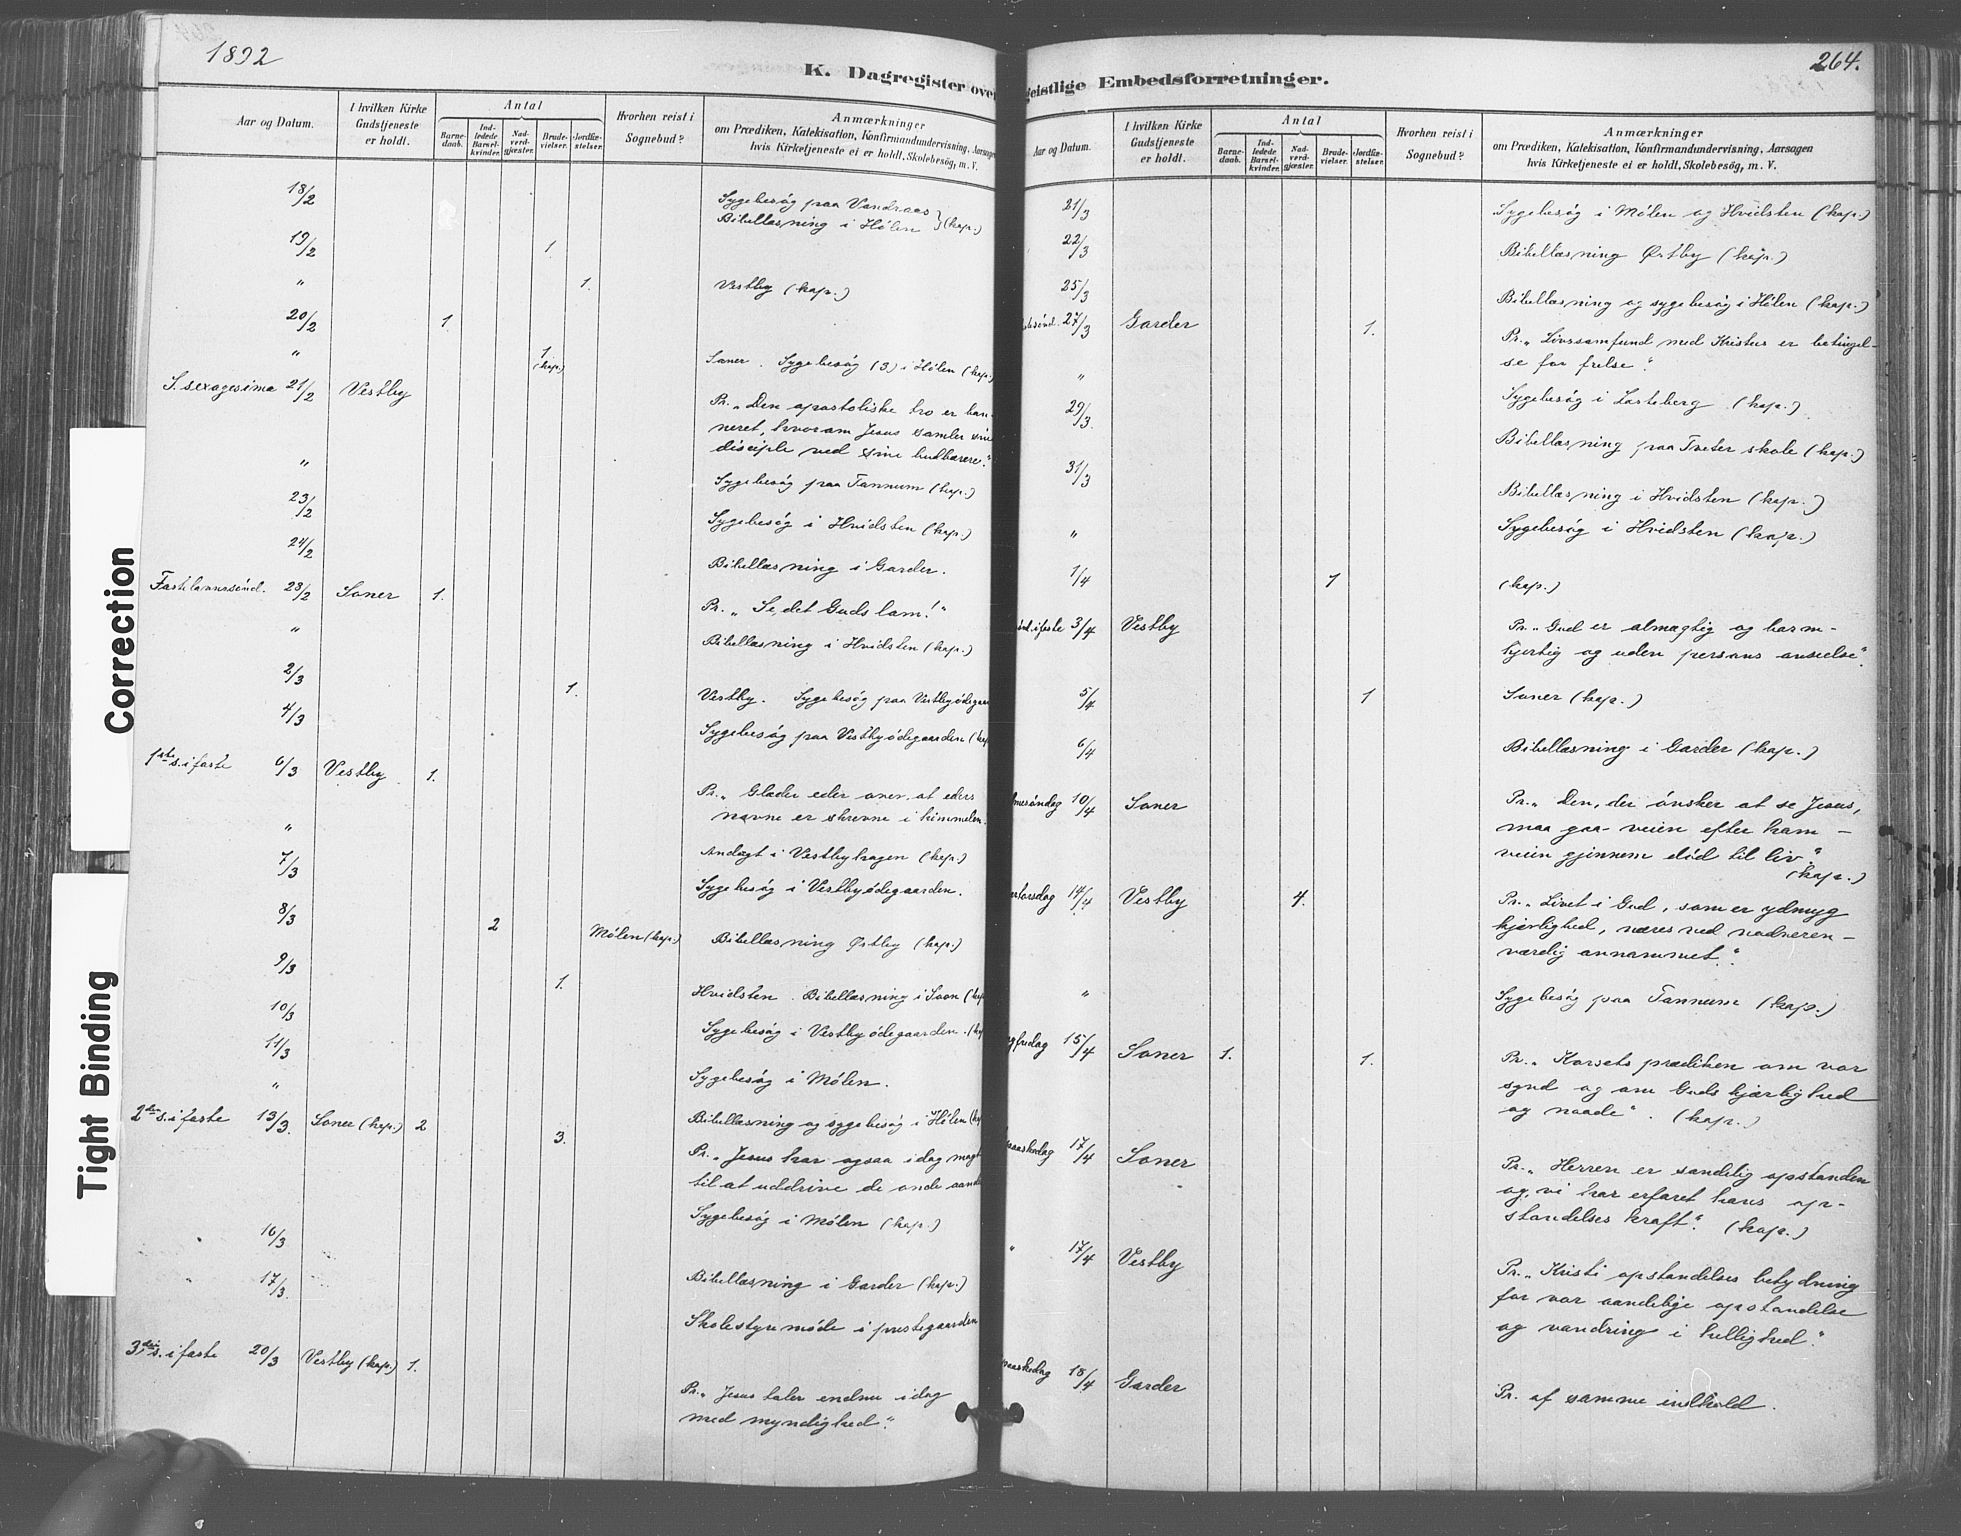 1892
K. Dagregister over
Aar og Datum.
I hvilken Kirke Gudstjeneste er holdt.
Antal
Barne-daab.
Ind-ledede Barsel-kvinder.
Nad-verd-gjæster.
Brude-vielser.
Jordfæ-stelser.
Hvorhen reist i Sognebud?
Anmærkninger
om Prædiken, Katekisation, Konfirmandundervisning, Aarsagen
hvis Kirketjeneste ei er holdt, Skolebesøg, m. V.
18/2 Sygebesøg paa Vandraas
Bibellæsning i Hölen } (kap.)
19/2 1
" 1. Vestby (kap.)
20/2 1.
" 1 (kap.) Soner. Sygebesøg (3) i Hölen (kap.)
S. sexagesima 21/2 Vestby
Pr. „Den apostoliske tro er ban-
neret, hvorom Jesus samler sine
disciple ved sine budbærere."
" Sygebesøg paa Tannum (kap.)
23/2 Sygebesøg i Hvidsten (kap.)
24/2 Bibellæsning i Garder.
Fastelavnssönd. 28/2 Soner 1. Pr. „Se, det Guds lam!"
" Bibellæsning i Hvidsten (kap.)
2/3 1. Vestby. Sygebesøg paa Vestbyödegaar
4/3 Sygebesøg paa Vestbyödegaarden (kap
1ste s. i faste 6/3 Vestby 1.
Pr. „Glæder eder over, at eders
navne er skrevne i himmelen.
" Andagt i Vestbyhagen (kap.)
7/3 Sygebesøg i Vestbyödegaarden.
8/3 2 Mölen (kap.) Bibellæsning Østby (kap.)
9/3 1. Hvidsten. Bibellæsning i Soon (kap
10/3 Sygebesøg i Vestbyödegaarden. (kap
11/3 Sygebesøg i Mölen.
" Bibellæsning og sygebesøg i Hölen (kap
2den s. i faste 13/3. Soner (kap.) 2 3.
Pr. „Jesus har ogsaa idag magt
til at uddrive de onde aande
Sygebesøg i Mölen (kap.)
16/3 Bibellæsning i Garder (kap.)
17/3. Skolestyremöde i prestegaarden
3die s. i faste 20/3 Vestby (kap.) 1.
Pr. „Jesus taler endnu idag
med myndighed."
264.
geistlige Embedsforretninger.
Aar og Datum.
I hvilken Kirke Gudstjeneste er holdt.
Antal
Barne-daab.
Ind-ledede Barsel-kvinder.
Nad-verd-gjæster.
Brude-vielser.
Jordfæ-stelser.
Hvorhen reist i Sognebud?
Anmærkninger
om Prædiken, Katekisation, Konfirmandundervisning, Aarsagen
hvis Kirketjeneste ei er holdt, Skolebesøg, m. V.
21/3 Sygebesøg i Mölen og Hvidsten (kap.)
22/3 Bibellæsning Østby (kap.)
25/3 Bibellæsning og sygebesøg i Hölen (kap.)
27/3 Garder 1.
Pr. „Livssamfund med Kristus er betingel-
se for frelse."
" Sygebesøg i Lasteberg (kap.)
29/3. Bibellæsning paa Tveter skole (kap.)
31/3 Bibellæsning i Hvidsten (kap.)
" Sygebesøg i Hvidsten (kap.)
1/4 1 (kap.)
sönd. i faste 3/4 Vestby
Pr. „Gud er almægtig og barm-
hjertig og uden persons anseelse."
5/4 1 Soner (kap.)
6/4 Bibellæsning i Garder (kap.)
lmesöndag 10/4 Soner
Pr. „Den, der önsker at se Jesus,
maa gaa veien efter ham –
veien gjennem död til liv."
(kap.)
ertorsdag 14/4 Vestby 4.
Pr. „Livet i Gud, som er ydmyg
kjærlighed, næres ved nadveren –
værdig annammet."
" Sygebesøg paa Tannum (kap.)
gfredag 15/4 Soner 1. 1.
Pr. „Korsets prædiken om vor
synd og om Guds kjærlighed
og naade". (kap.)
paaskedag 17/4 Soner
Pr. „Herren er sandelig opstanden
og vi har erfaret hans op-
standelses kraft." (kap.)
" 17/4 Vestby
Pr. „Kristi opstandelses betydning
for vor aandelige opstandelse
og vandring i hellighed."
paaskedag 18/4 Garder
Pr. af samme indhold.
Correction
Tight Binding